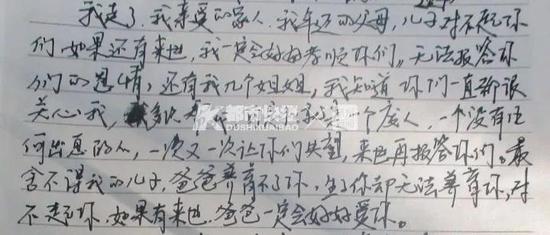 我走了，我亲爱的家人，我年迈的父母，儿子对不起你
们，如果还有来世，我一定会好好孝顺你们。无法报答你
们的恩情，还有我几个姐姐，我知道你们一直都很
关心我，一个废人，一个没有任
何出息的人，一次又一次让你们失望，来世再报答你们。最
舍不得我的儿子，爸爸养育不了你，生了你却无法养育你，对
不起你，如果有来世，爸爸一定会好好爱你。
都市快报
DUSHIKUAIBAO